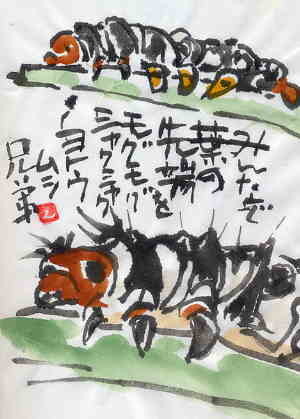 みんなで
葉の
先端を
モグモグ
ムシャクシャ
ヨトウ
ムシ
兄弟